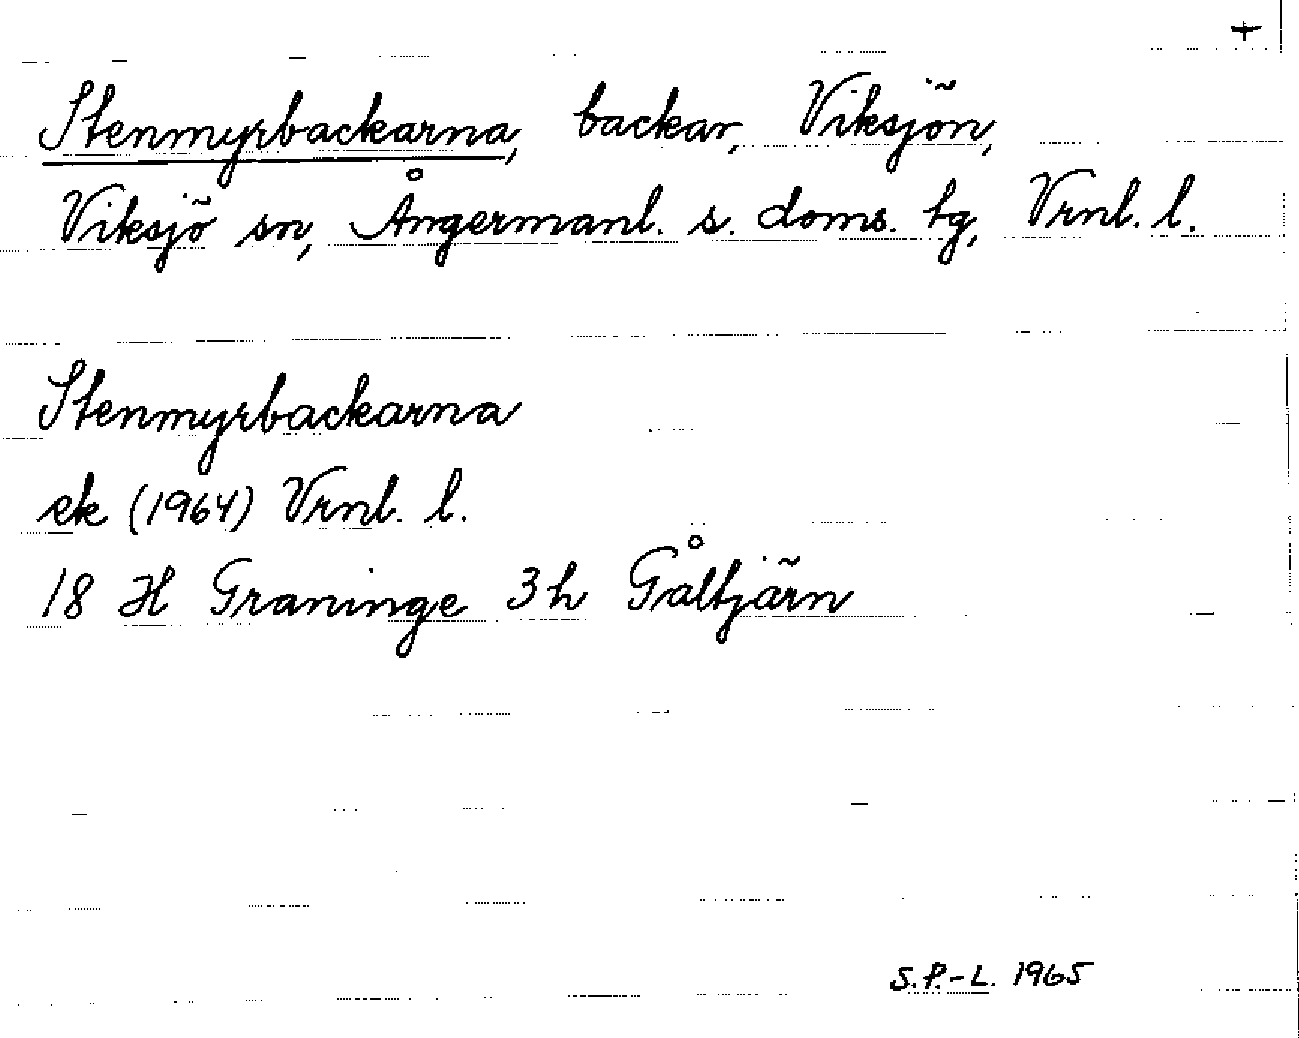 +
Stenmyrbackarna, backar, Viksjön,
Viksjö sn, Ångermanl. s. doms. tg, Vrnl. l.
Stenmyrbackarna
ek (1964) Vrnl. l.
18 H Graninge 3h Gåltjärn
S.P.-L. 1965